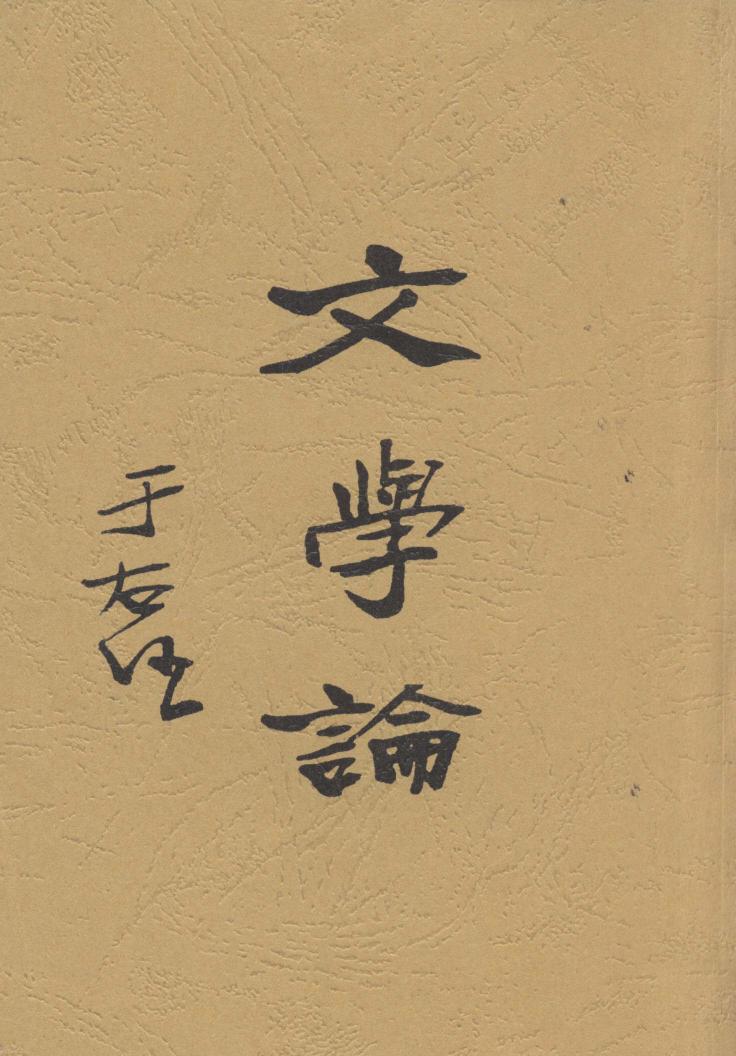 文學論
于右任